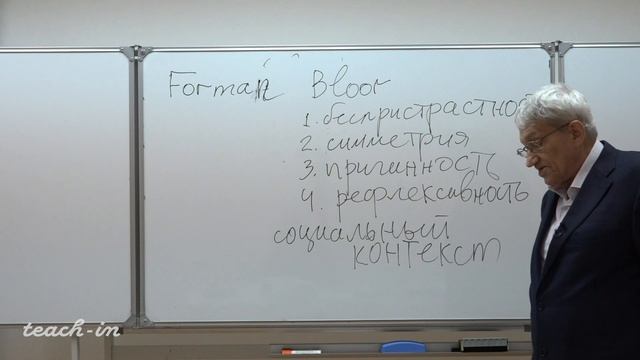 Forman Bloor
1. беспристрастно
2. симметрия
3. причинность
4. рефлексивность
социальный
контекст
teach-in